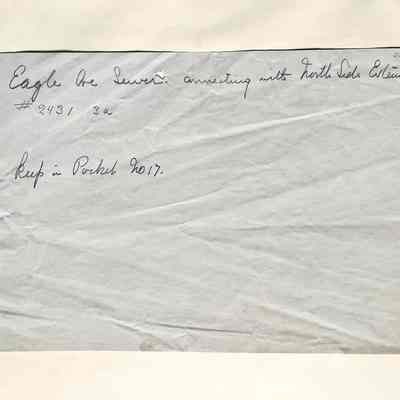 Eagle Ave Sewer. connecting with North Side
# 2431
Keep in Pocket No 17.